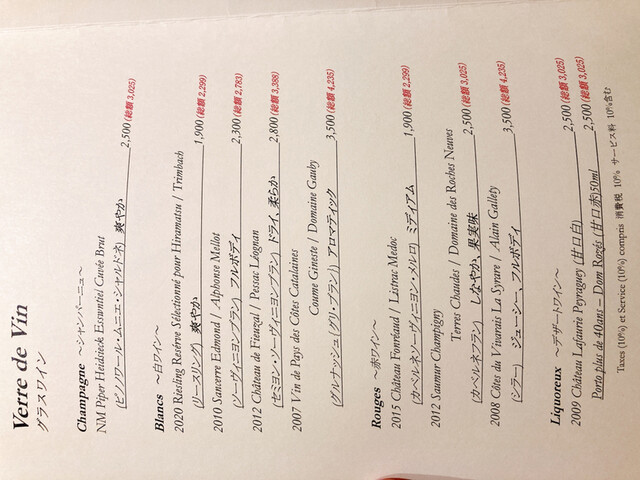 Verre de Vin
グラスワイン
Champagne ～シャンパーニュ～
NM Piper Heidsieck Essentiel Cuvée Brut
(ピノノワール・ムーニエ・シャルドネ) 爽やか 2,500 (総額 3,025)
Blancs ～白ワイン～
2020 Riesling Resérve Sélectionné pour Hiramatsu / Trimbach
(リースリング) 爽やか 1,900 (総額 2,299)
2010 Sancerre Edmond / Alphonse Mellot
(ソーヴィニヨンブラン) フルボディ 2,300 (総額 2,783)
2012 Château de Fieuzal / Pessac Léognan
(セミヨン・ソーヴィニヨンブラン) ドライ、柔らか 2,800 (総額 3,388)
2007 Vin de Pays des Côtes Catalaines
Coume Gineste / Domaine Gauby
(グルナッシュ(グリ・ブラン)) アロマティック 3,500 (総額 4,235)
Rouges ～赤ワイン～
2015 Château Fouréaud / Listrac Medoc
(カベルネソーヴィニヨン・メルロ) ミディアム 1,900 (総額 2,299)
2012 Saumur Champigny
Terres Chaudes / Domaine des Roches Neuves
(カベルネフラン) しなやか、果実味 2,500 (総額 3,025)
2008 Côtes du Vivarais La Syrare / Alain Gallety
(シラー) ジューシー、フルボディ 3,500 (総額 4,235)
Liquoreux ～デザートワイン～
2009 Château Lafaurie Peyraguey (甘口白) 2,500 (総額 3,025)
Porto plus de 40ans – Dom Rozés (甘口赤)50ml 2,500 (総額 3,025)
Taxes (10%) et Service (10%) compris 消費税 10% サービス料 10%含む